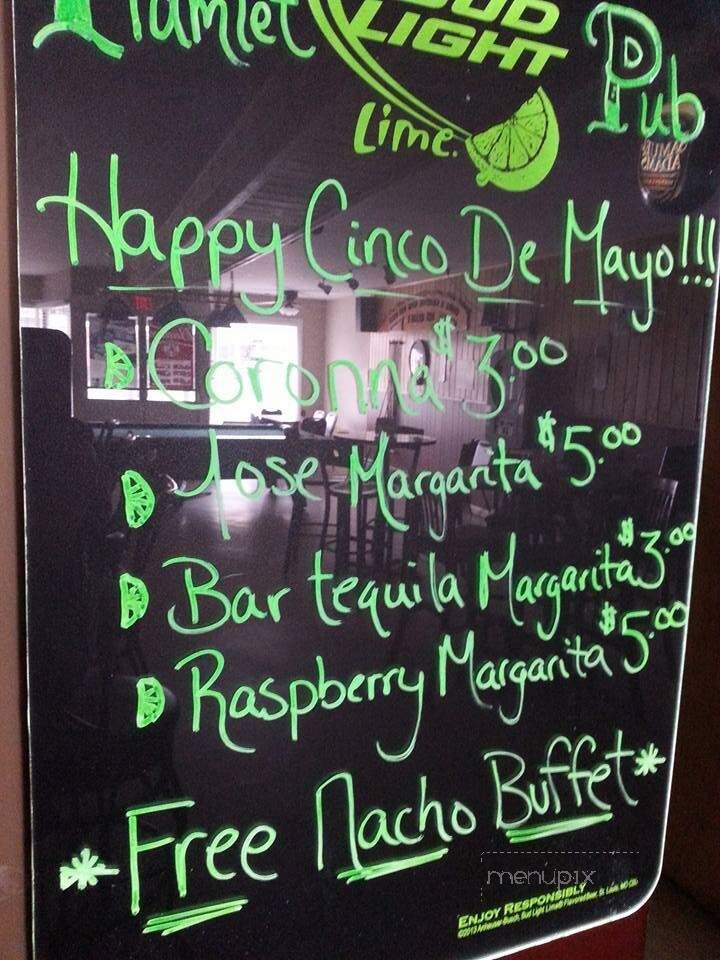 Hamlet BUD LIGHT Pub
Lime.
Happy Cinco De Mayo!!!
Coronna $3.00
Jose Margarita $5.00
Bar tequila Margarita $3.00
Raspberry Margarita $5.00
*Free Nacho Buffet*
menupix
ENJOY RESPONSIBLY
©2013 Anheuser-Busch, Bud Light Lime® Flavored Beer, St. Louis, MO